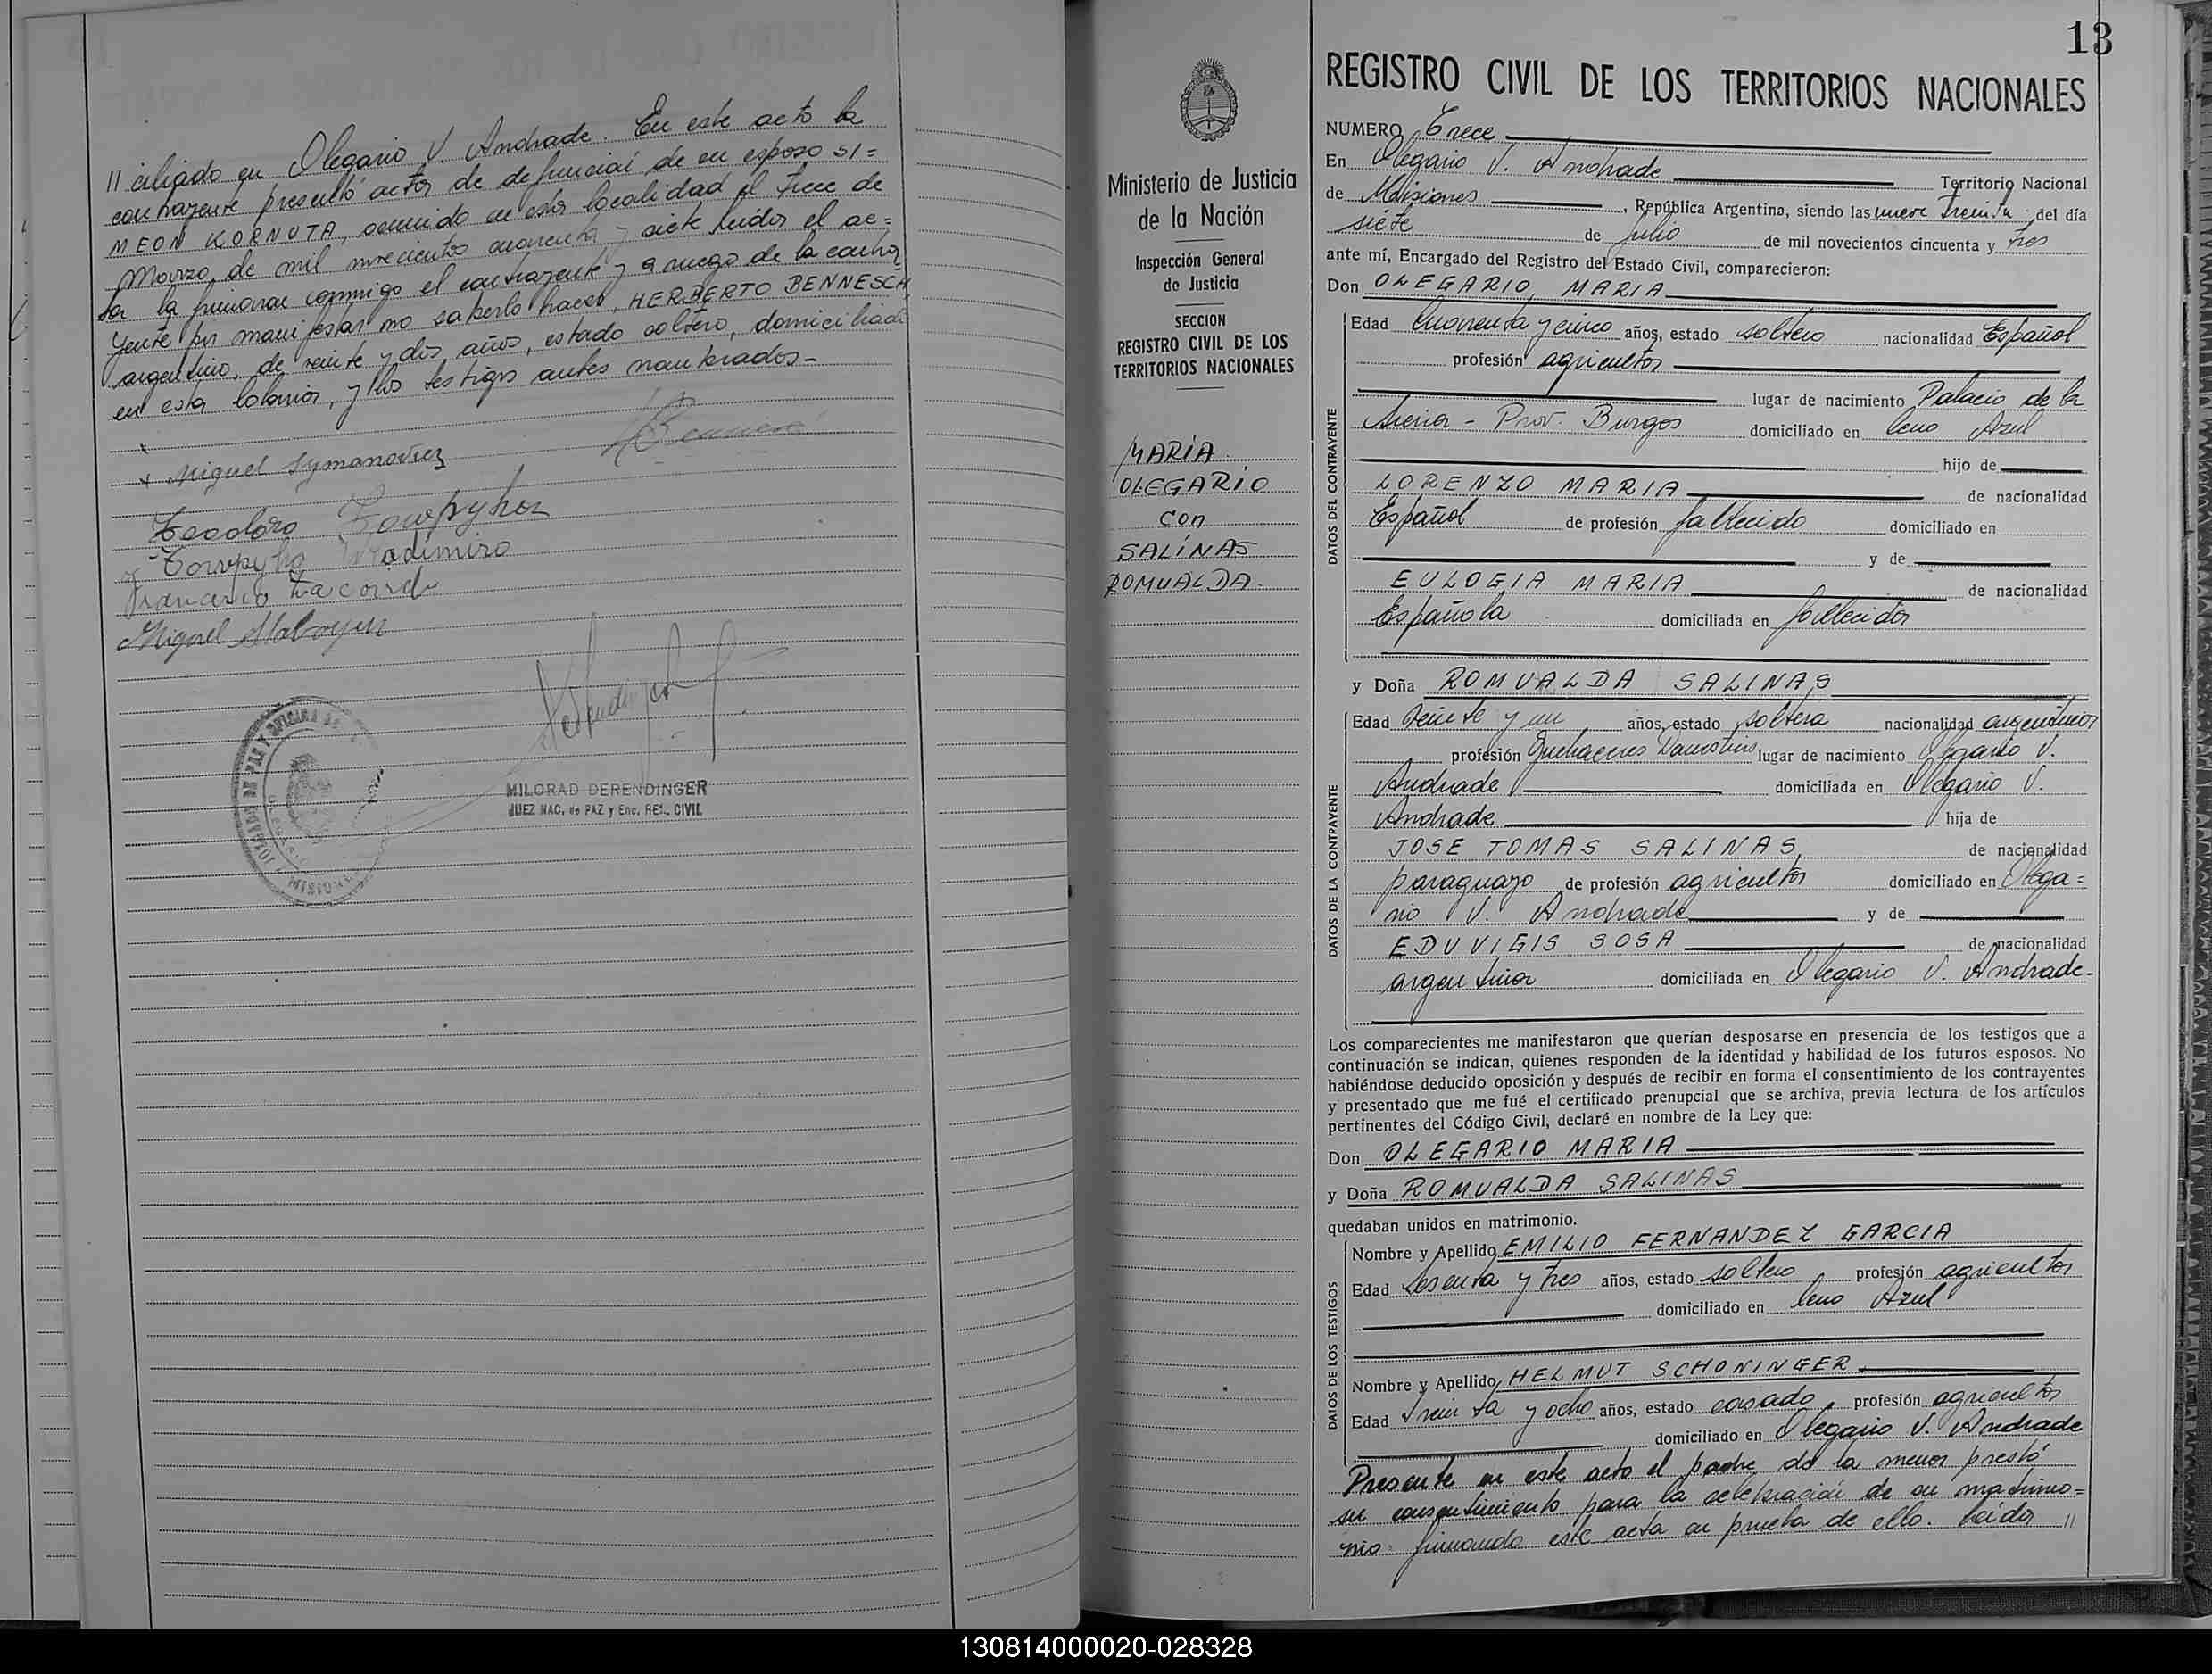 // ciliado en Olegario V. Andrade. En este acto la
contrayente presentó acta de defunción de su esposo SI=
MEON KORNUTA, ocurrido en esta localidad el trece de
Marzo de mil novecientos cuarenta y siete leída el ac=
ta la firmaron conmigo el contrayente y a ruego de la contra
yente por manifestar no saberlo hacer, HERBERTO BENNESCH
argentino, de veinte y dos años, estado soltero, domiciliado
en esta Colonia, y los testigos antes nombrados-
x
x Miguel Symanoviez
Teodoro
Wladimiro
Francisco
Miguel
JUZGADO DE PAZ Y OFICINA DE
MISIONES
MILORAD DERENDINGER
JUEZ NAC. de PAZ y Enc. REG. CIVIL
13
Ministerio de Justicia
de la Nación
Inspección General
de Justicia
SECCION
REGISTRO CIVIL DE LOS
TERRITORIOS NACIONALES
MARIA
OLEGARIO
con
SALINAS
ROMUALDA.
REGISTRO CIVIL DE LOS TERRITORIOS NACIONALES
NUMERO Trece
En Olegario V. Andrade Territorio Nacional
de Misiones, República Argentina, siendo las nueve treinta del día
siete de Julio de mil novecientos cincuenta y tres
ante mí, Encargado del Registro del Estado Civil, comparecieron:
Don OLEGARIO MARIA
DATOS DEL CONTRAYENTE
Edad Cuarenta y cinco años, estado soltero nacionalidad Español
profesión agricultor
lugar de nacimiento Palacio de la
Sierra - Prov. Burgos domiciliado en Ceno Azul
hijo de
LORENZO MARIA de nacionalidad
Español de profesión fallecido domiciliado en
y de
EULOGIA MARIA de nacionalidad
Española domiciliada en fallecida
y Doña ROMUALDA SALINAS
DATOS DE LA CONTRAYENTE
Edad Veinte y un años, estado soltera nacionalidad argentina
profesión Quehaceres Domésticos lugar de nacimiento Olegario V.
Andrade domiciliada en Olegario V.
Andrade hija de
JOSE TOMAS SALINAS, de nacionalidad
paraguayo de profesión agricultor domiciliado en Olega=
rio V. Andrade y de
EDUVIGIS SOSA de nacionalidad
argentina domiciliada en Olegario V. Andrade-
Los comparecientes me manifestaron que querían desposarse en presencia de los testigos que a
continuación se indican, quienes responden de la identidad y habilidad de los futuros esposos. No
habiéndose deducido oposición y después de recibir en forma el consentimiento de los contrayentes
y presentado que me fué el certificado prenupcial que se archiva, previa lectura de los artículos
pertinentes del Código Civil, declaré en nombre de la Ley que:
Don OLEGARIO MARIA
y Doña ROMUALDA SALINAS
quedaban unidos en matrimonio.
DATOS DE LOS TESTIGOS
Nombre y Apellido EMILIO FERNANDEZ GARCIA
Edad Sesenta y tres años, estado soltero profesión agricultor
domiciliado en Ceno Azul
Nombre y Apellido HELMUT SCHONINGER.
Edad Treinta y ocho años, estado casado profesión agricultor
domiciliado en Olegario V. Andrade
Presente en este acto el padre de la menor prestó
su consentimiento para la celebración de su matrimo=
nio firmando este acta en prueba de ello. Leída //
130814000020-028328